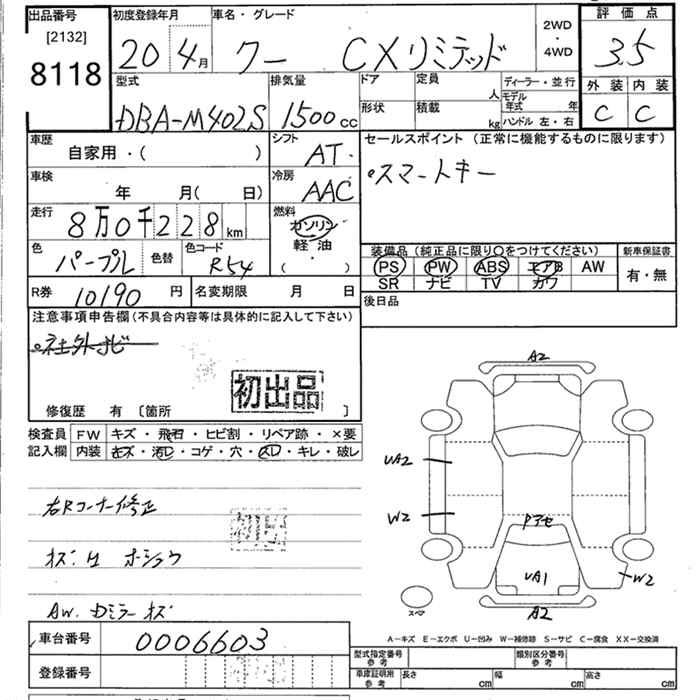 出品番号 初度登録年月 車名・グレード 2WD・4WD 評価点
[2132]
8118
20 4月 クー CXリミテッド 3.5
型式 排気量 ドア 定員 人 ディーラー・並行 外装 内装
DBA-M402S 1500cc 形状 積載 kg モデル年式 年 ハンドル 左・右 C C
車歴 自家用・( ) シフト AT. セールスポイント (正常に機能するものに限ります)
車検 年 月( 日) 冷房 AAC スマートキー
走行 8万0千228km 燃料 ガソリン
軽油
・
( )
色 パープル 色替 色コード R54 装備品 (純正品に限り○をつけてください) 新車保証書
PS PW ABS エアB AW 有・無
SR ナビ TV カワ
R券 10190円 名変期限 月 日 後日品
注意事項申告欄 (不具合内容等は具体的に記入して下さい)
社外ナビ
初出品
修復歴 有 〔箇所 〕
検査員 FW キズ・飛石・ヒビ割・リペア跡・×要
記入欄 内装 キズ・汚レ・コゲ・穴・スレ・キレ・破レ
A2
UA2
W2
Pアセ
UA1
W2
A2
スペア
右Rコーナー修正
初出
AW. Dミラーキズ
A－キズ E－エクボ U－凹み W－補修跡 S－サビ C－腐食 XX－交換済
車台番号 0006603 型式指定番号 参考 類別区分番号 参考
登録番号 車庫証明用 参考 長さ cm 幅 cm 高さ cm